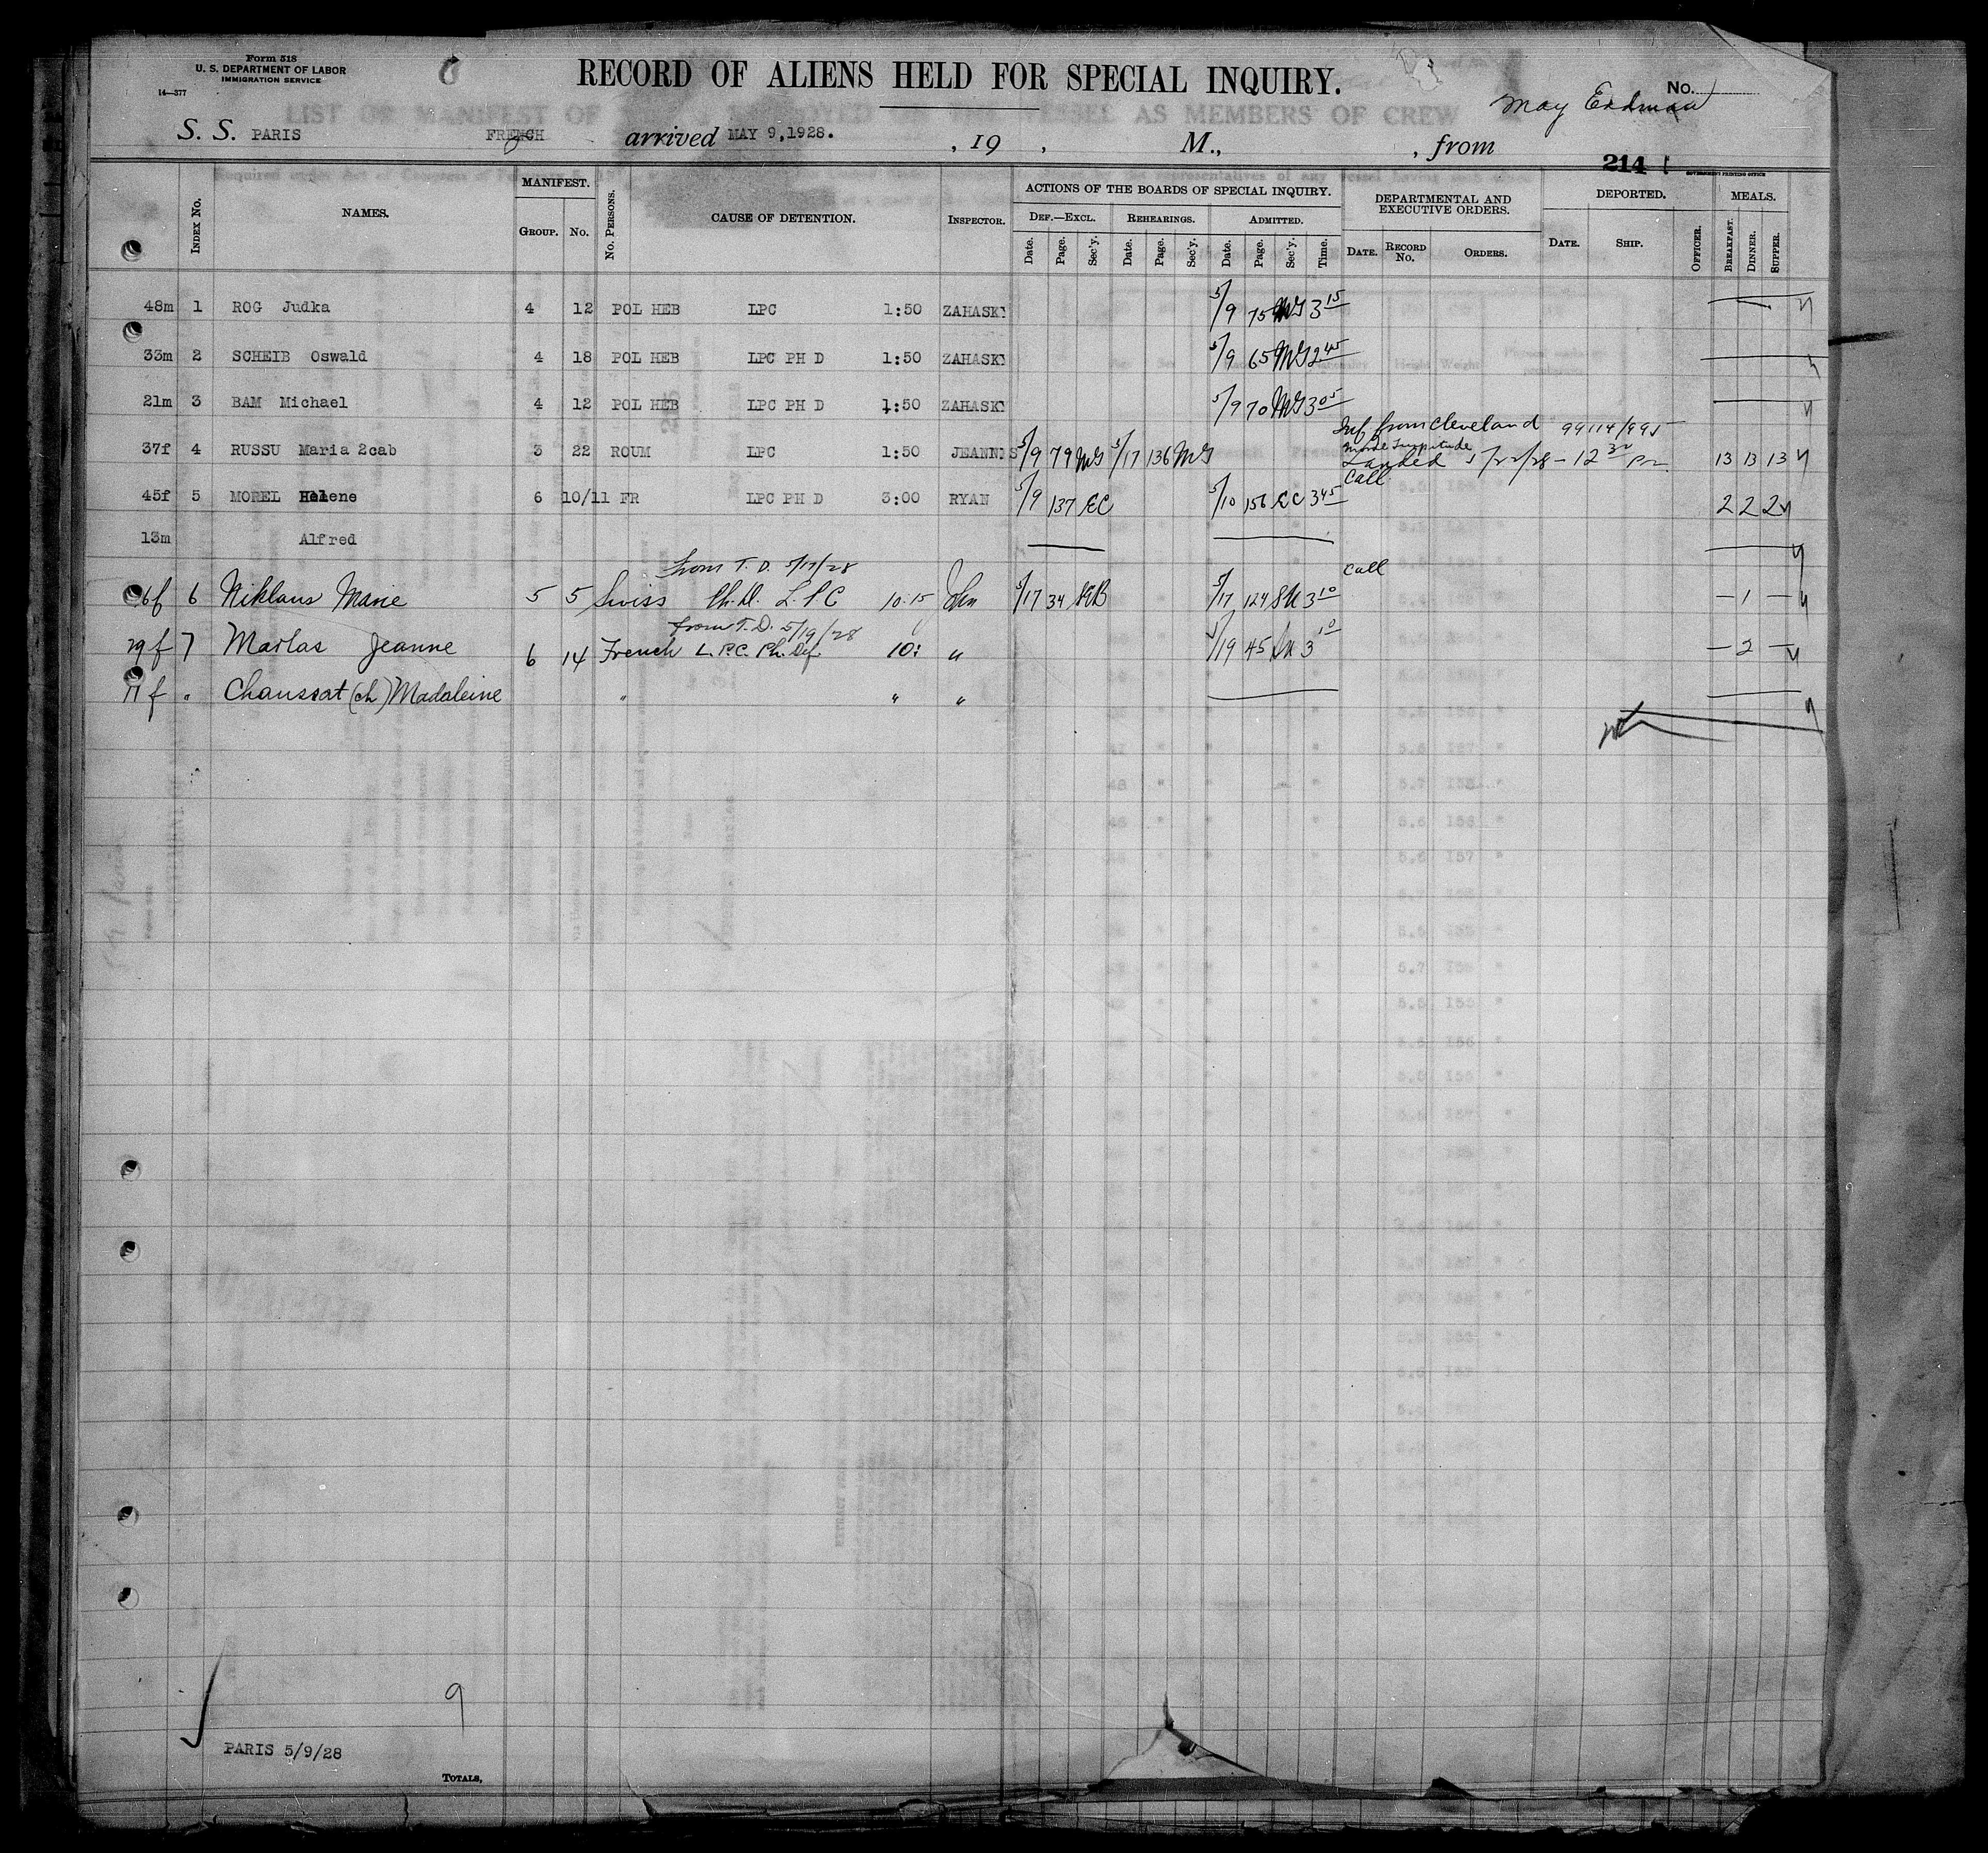 Form 518
U. S. DEPARTMENT OF LABOR
IMMIGRATION SERVICE
14—377
RECORD OF ALIENS HELD FOR SPECIAL INQUIRY.
No.
May Erdman
S. S. PARIS FRENCH arrived MAY 9,1928. , 19 , M., , from
214
GOVERNMENT PRINTING OFFICE
INDEX No. NAMES. MANIFEST. No. PERSONS. CAUSE OF DETENTION. INSPECTOR. ACTIONS OF THE BOARDS OF SPECIAL INQUIRY. DEPARTMENTAL AND EXECUTIVE ORDERS. DEPORTED. MEALS.
GROUP. No. DEF.—EXCL. REHEARINGS. ADMITTED. DATE. RECORD No. ORDERS. DATE. SHIP. OFFICER. BREAKFAST. DINNER. SUPPER.
Date. Page. Sec'y. Date. Page. Sec'y. Date. Page. Sec'y. Time.
48m 1 ROG Judka 4 12 POL HEB LPC 1:50 ZAHASKY 5/9 75 MG 3 15
33m 2 SCHEIB Oswald 4 18 POL HEB LPC PH D 1:50 ZAHASKY 5/9 65 MG 2 45
21m 3 BAM Michael 4 12 POL HEB LPC PH D 1:50 ZAHASKY 5/9 70 MG 3 05
Inf from Cleveland 99114/995
37f 4 RUSSU Maria 2cab 3 22 ROUM LPC 1:50 JEANNIS 5/9 79 MG 5/17 136 MG Landed 5/22/28 - 12 30 Pm 13 13 13
Call
45f 5 MOREL Helene 6 10/11 FR LPC PH D 3:00 RYAN 5/9 137 EC 5/10 156 EC 3 45 2 2 2
13m Alfred
from T. D. 5/17/28 Call
6f 6 Niklaus Marie 5 5 Swiss Ph. D. L.P.C 10.15 John 5/17 34 5/17 124 3 10 — 1 —
from T. D. 5/19/28
29f 7 Marlas Jeanne 6 14 French L.P.C. Ph. Def. 10: " 5/19 45 3 10 — 2 —
11f " Chaussat (ch) Madaleine " " "
9
PARIS 5/9/28
TOTALS,